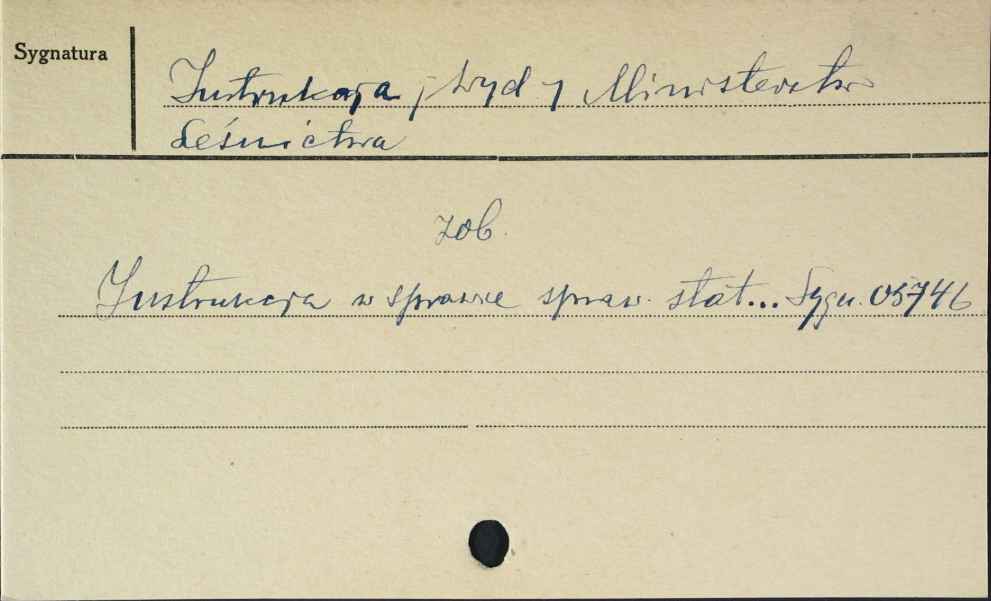 Sygnatura
Instrukcja / wyd / Ministerstwo
Leśnictwa
zob.
Instrukcja w sprawie spraw. stat... Sygn. 05746